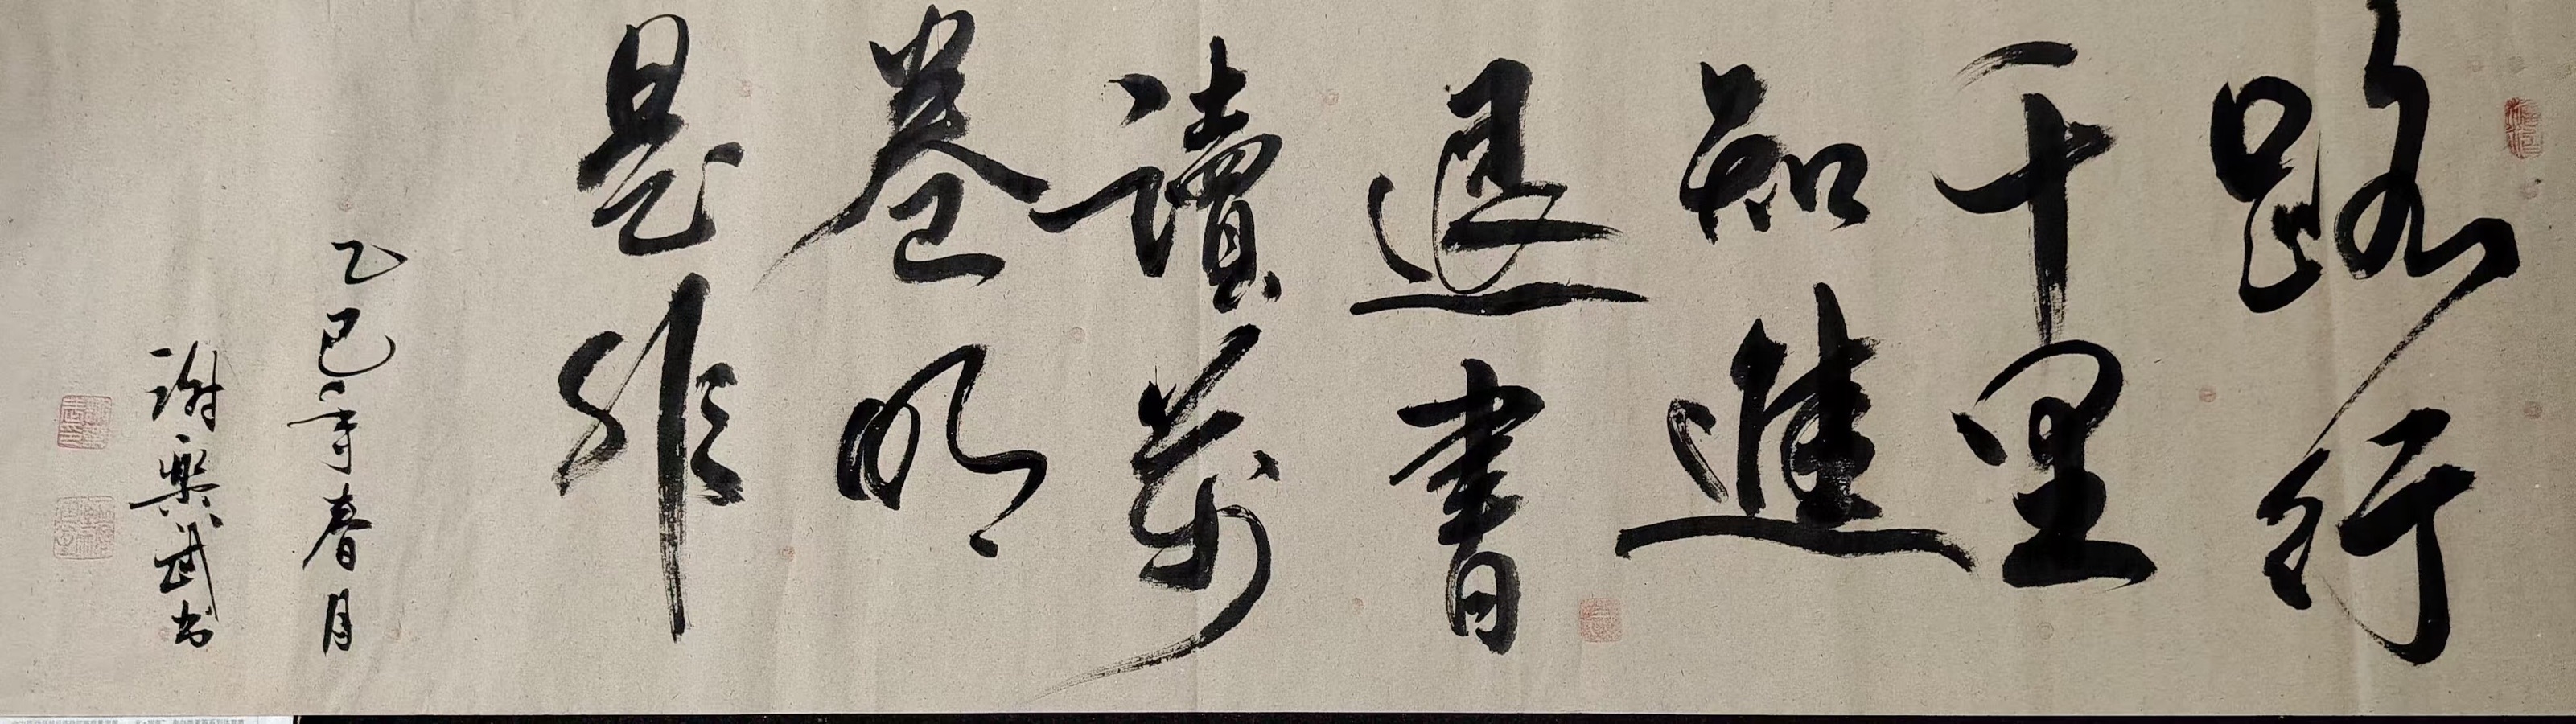 路行
千里
知進
退書
讀萬
卷明
是非
乙巳年春月
謝樂武书